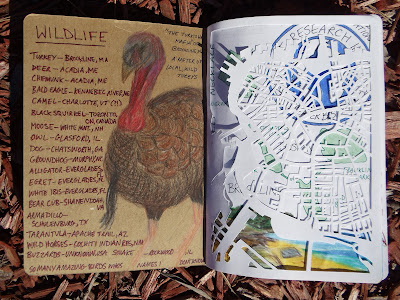 WILDLIFE
TURKEY - BROOKLINE, MA
DEER - ACADIA, ME
CHIPMUNK - ACADIA, ME
BALD EAGLE - KENNEBEC RIVER, ME
CAMEL - CHARLOTTE, VT (!!)
BLACK SQUIRREL - TORONTO, ON, CANADA
MOOSE - WHITE MNT., NH
OWL - GLASFORD, IL
DOG - CHATSWORTH, GA
GROUNDHOG - MURPHY, NC
ALLIGATOR - EVERGLADES, FL
EGRET - EVERGLADES, FL
WHITE IBIS - EVERGLADES, FL
BEAR CUB - SHENANDOAH, VA
ARMADILLO -
SCHULENBURG, TX
TARANTULA - APACHE
AZ
WILD HORSES - COCHITI INDIAN RES, NM
BUZZARDS - UNKNOWN, USA
SNAKE - ROCKWOOD
SO MANY AMAZING BIRDS WHOS
NAMES I
DON'T KNOW
"THE TURKEY
A
LOCAL, WILD
TURKEY
RESEARCH
FRANKLIN
PARK